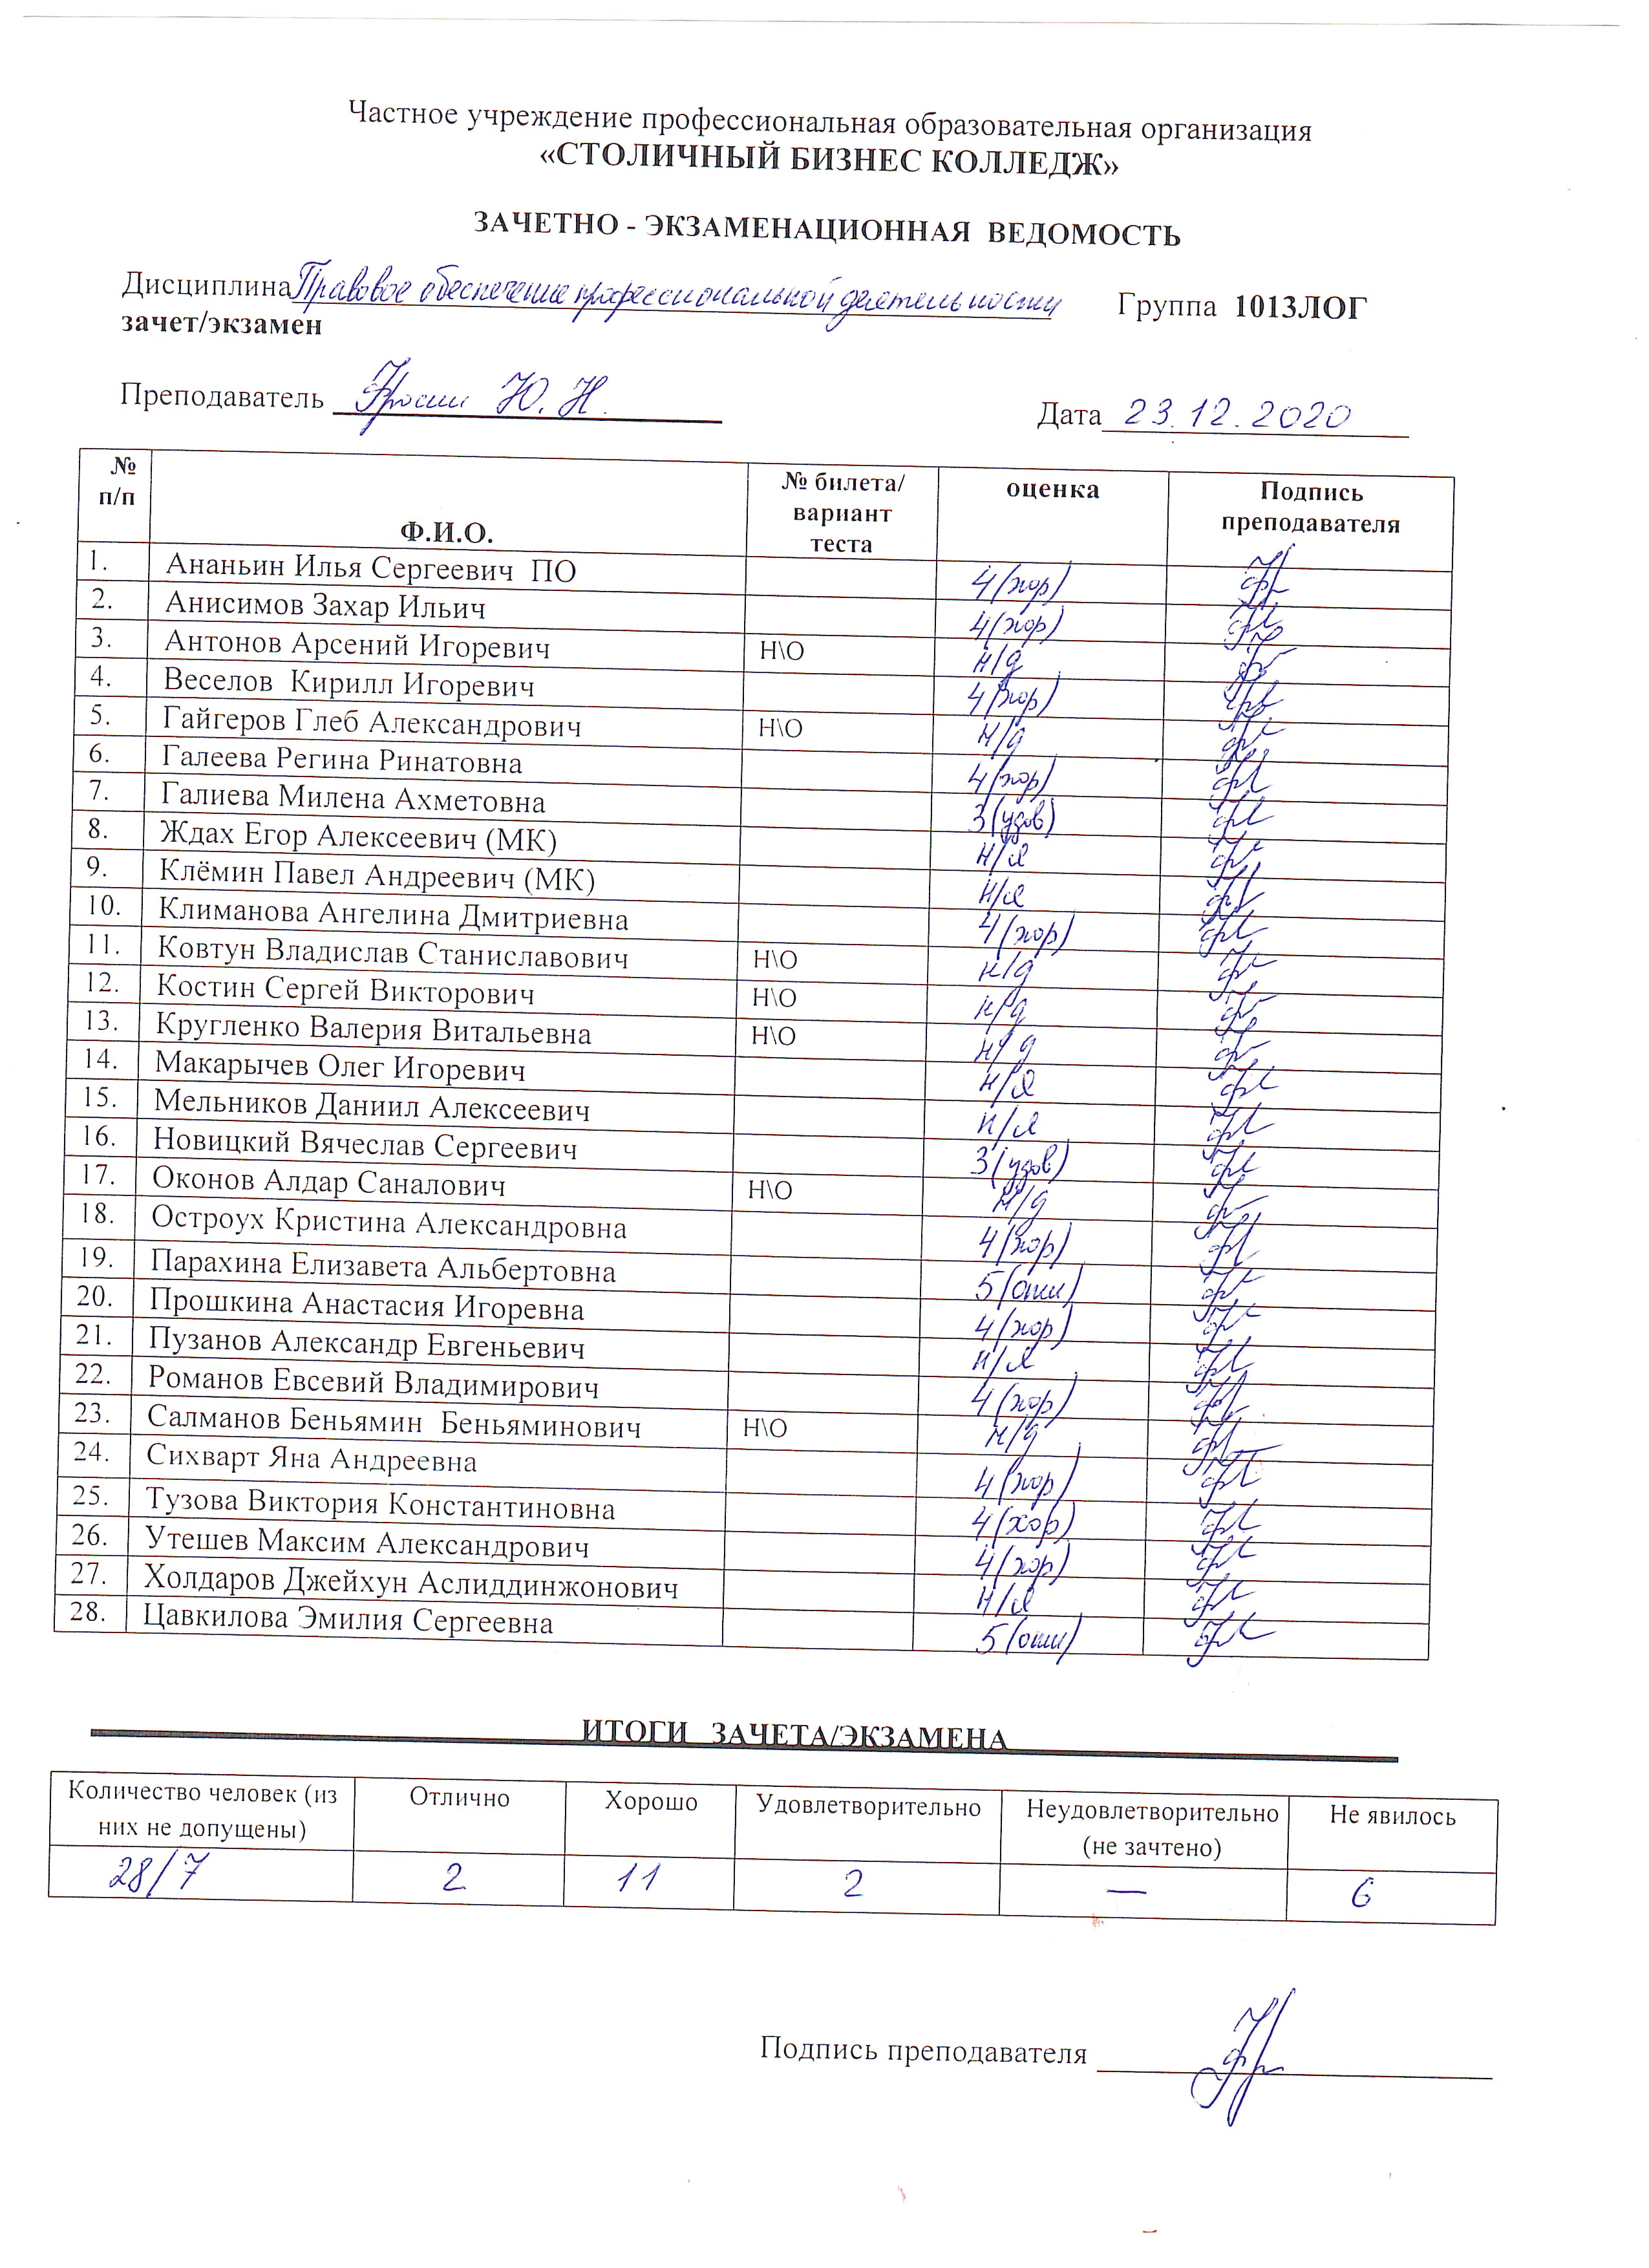 Частное учреждение профессиональная образовательная организация
«СТОЛИЧНЫЙ БИЗНЕС КОЛЛЕДЖ»
ЗАЧЕТНО - ЭКЗАМЕНАЦИОННАЯ ВЕДОМОСТЬ
Дисциплина Правовое обеспечение профессиональной деятельности Группа 1013ЛОГ
зачет/экзамен
Преподаватель Ю. Н. Дата 23.12.2020
№ п/п Ф.И.О. № билета/ вариант теста оценка Подпись преподавателя
1. Ананьин Илья Сергеевич ПО 4(хор)
2. Анисимов Захар Ильич 4(хор)
3. Антонов Арсений Игоревич Н\О н/д
4. Веселов Кирилл Игоревич 4(хор)
5. Гайгеров Глеб Александрович Н\О н/д
6. Галеева Регина Ринатовна 4(хор)
7. Галиева Милена Ахметовна 3(удов)
8. Ждах Егор Алексеевич (МК) н/я
9. Клёмин Павел Андреевич (МК) н/я
10. Климанова Ангелина Дмитриевна 4(хор)
11. Ковтун Владислав Станиславович Н\О н/д
12. Костин Сергей Викторович Н\О н/д
13. Кругленко Валерия Витальевна Н\О н/д
14. Макарычев Олег Игоревич н/я
15. Мельников Даниил Алексеевич н/я
16. Новицкий Вячеслав Сергеевич 3(удов)
17. Оконов Алдар Саналович Н\О н/д
18. Остроух Кристина Александровна 4(хор)
19. Парахина Елизавета Альбертовна 5(отл)
20. Прошкина Анастасия Игоревна 4(хор)
21. Пузанов Александр Евгеньевич н/я
22. Романов Евсевий Владимирович 4(хор)
23. Салманов Беньямин Беньяминович Н\О н/д
24. Сихварт Яна Андреевна 4(хор)
25. Тузова Виктория Константиновна 4(хор)
26. Утешев Максим Александрович 4(хор)
27. Холдаров Джейхун Аслиддинжонович н/я
28. Цавкилова Эмилия Сергеевна 5(отл)
ИТОГИ ЗАЧЕТА/ЭКЗАМЕНА
Количество человек (из них не допущены) Отлично Хорошо Удовлетворительно Неудовлетворительно (не зачтено) Не явилось
28/7 2 11 2 — 6
Подпись преподавателя